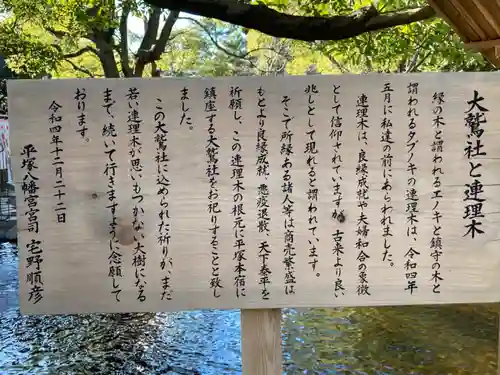 大鷲社と連理木
縁の木と謂われるエノキと鎮守の木と
謂われるタブノキの連理木は、令和四年
五月に私達の前にあらわれました。
連理木は、良縁成就や夫婦和合の象徴
として信仰されていますが、古来より良い
兆しとして現れると謂われています。
そこで所縁ある諸人等は商売繁盛は
もとより良縁成就、悪疫退散、天下泰平を
祈願し、この連理木の根元に平塚本宿に
鎮座する大鷲社をお祀りすることと致し
ました。
この大鷲社に込められた祈りが、また
若い連理木が思いもつかない大樹になる
まで、続いて行きますように念願して
おります。
令和四年十二月二十二日
平塚八幡宮宮司 宅野順彦